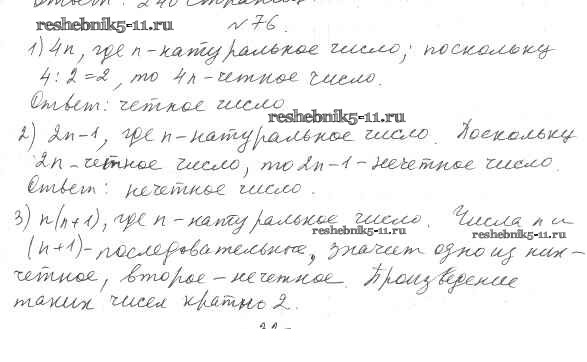 Ответ: 240 страниц
reshebnik5-11.ru
№ 76.
1) 4n, где n - натуральное число; поскольку
4 : 2 = 2, то 4n - четное число.
Ответ: четное число
reshebnik5-11.ru
2) 2n-1, где n - натуральное число. Поскольку
2n - четное число, то 2n-1 - нечетное число.
Ответ: нечетное число.
3) n(n+1), где n - натуральное число. Числа n и
reshebnik5-11.ru
(n+1) - последовательные, значит одно из них -
reshebnik5-11.ru
четное, второе - нечетное. Произведение
таких чисел кратно 2.